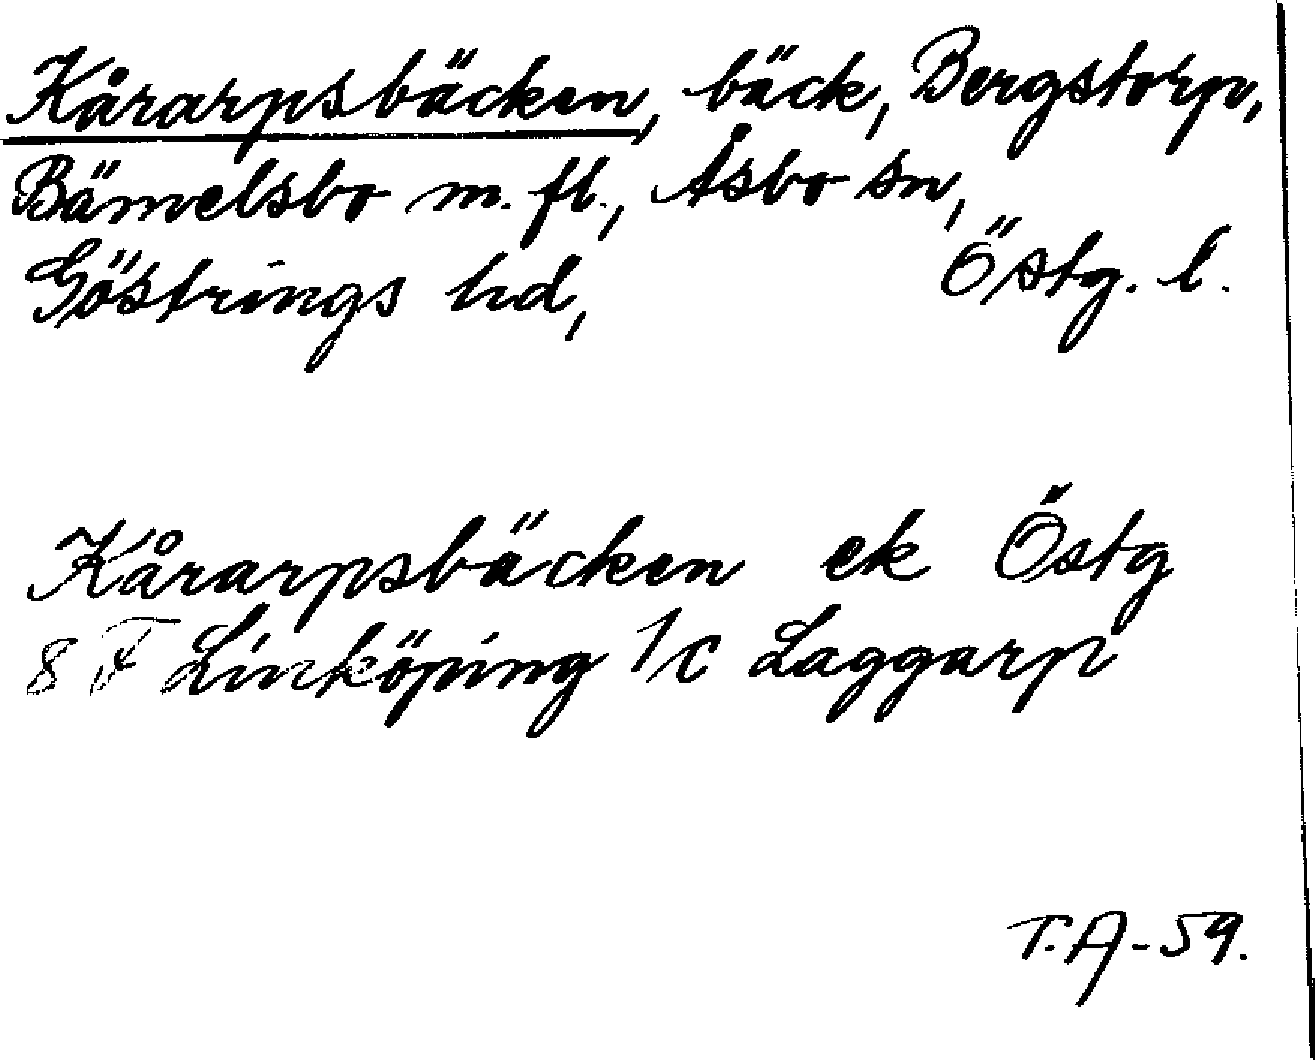 Kårarpsbäcken, bäck, Bergstorp,
Bämelsbo m. fl., Åsbo sn,
Göstrings hd, Östg. l.
Kårarpsbäcken ek Östg
8 F Linköping 1/c Laggarp
T.A-59.